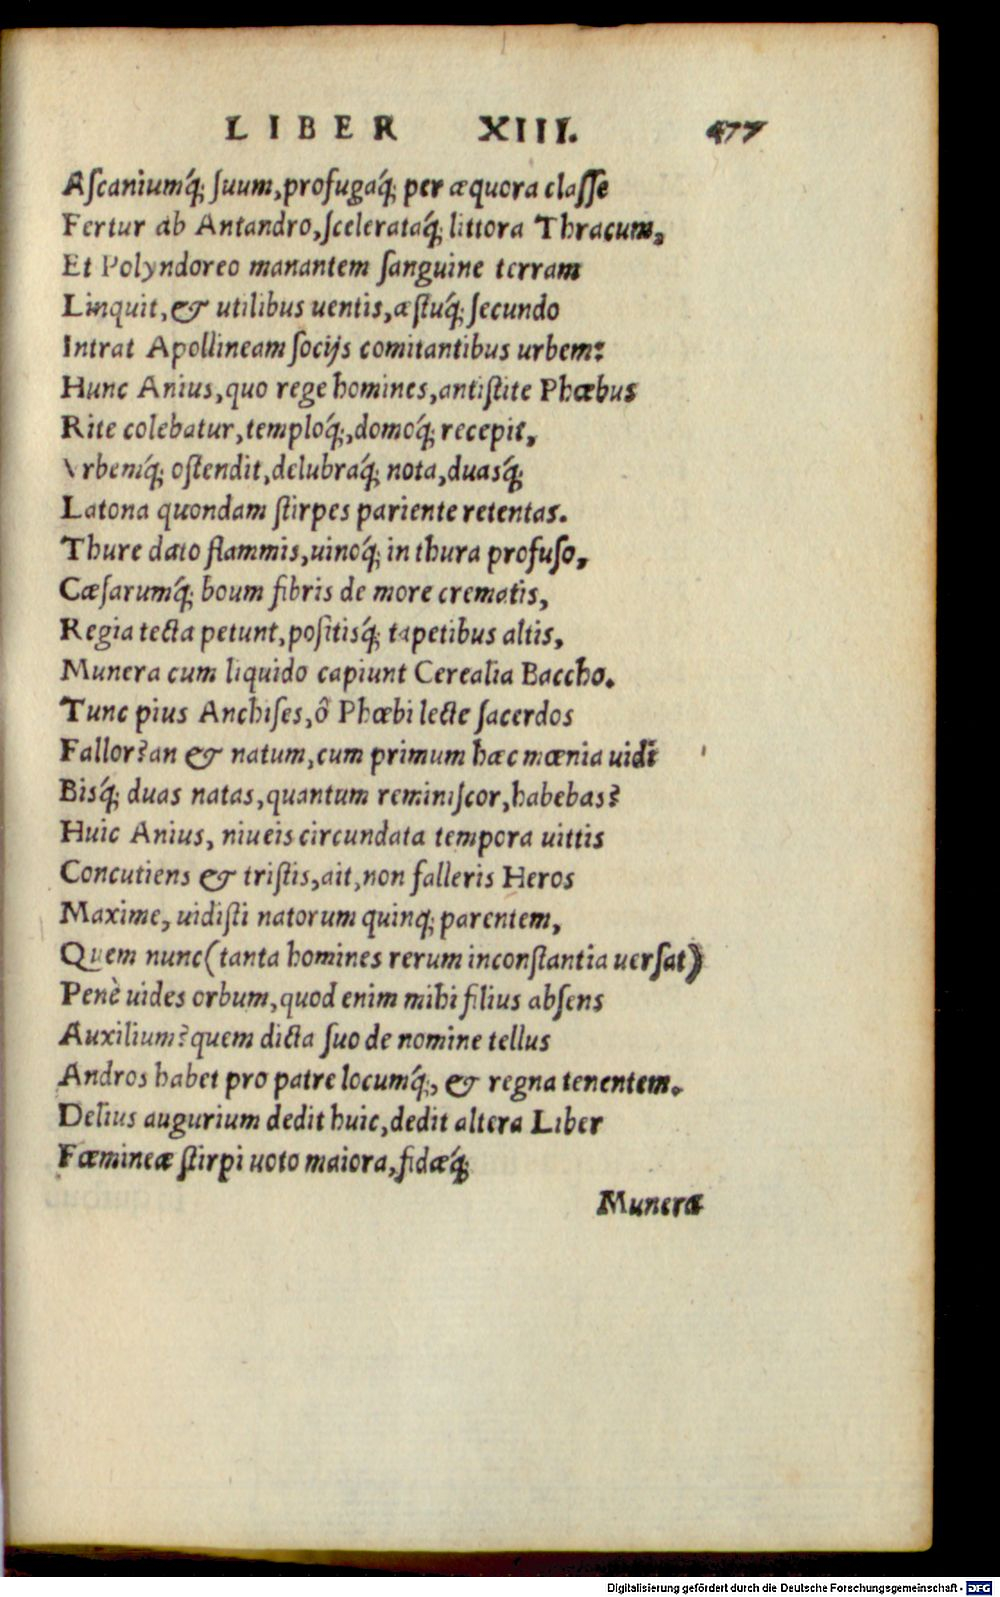 LIBER XIII. 477
Aſcaniumq́; ſuum, profugaq́; per æquora claſſe
Fertur ab Antandro, ſcelerataq́; littora Thracum,
Et Polyndoreo manantem ſanguine terram
Linquit, & utilibus uentis, æſtuq́; ſecundo
Intrat Apollineam ſocijs comitantibus urbem:
Hunc Anius, quo rege homines, antiſtite Phœbus
Rite colebatur, temploq́;, domoq́; recepit,
Vrbemq́; oſtendit, delubraq́; nota, duasq́;
Latona quondam ſtirpes pariente retentas.
Thure dato flammis, uinoq́; in thura profuſo,
Cæſarumq́; boum fibris de more crematis,
Regia tecta petunt, poſitisq́; tapetibus altis,
Munera cum liquido capiunt Cerealia Baccho.
Tunc pius Anchiſes, ô Phœbi lecte ſacerdos
Fallor? an & natum, cum primum hæc mœnia uidi
Bisq́; duas natas, quantum reminiſcor, habebas?
Huic Anius, niueis circundata tempora uittis
Concutiens & triſtis, ait, non falleris Heros
Maxime, uidiſti natorum quinq; parentem,
Quem nunc (tanta homines rerum inconſtantia uerſat)
Penè uides orbum, quod enim mihi filius abſens
Auxilium? quem dicta ſuo de nomine tellus
Andros habet pro patre locumq́;, & regna tenentem.
Delius augurium dedit huic, dedit altera Liber
Fœmineæ ſtirpi uoto maiora, fidæq́;
Munera
Digitalisierung gefördert durch die Deutsche Forschungsgemeinschaft - DFG